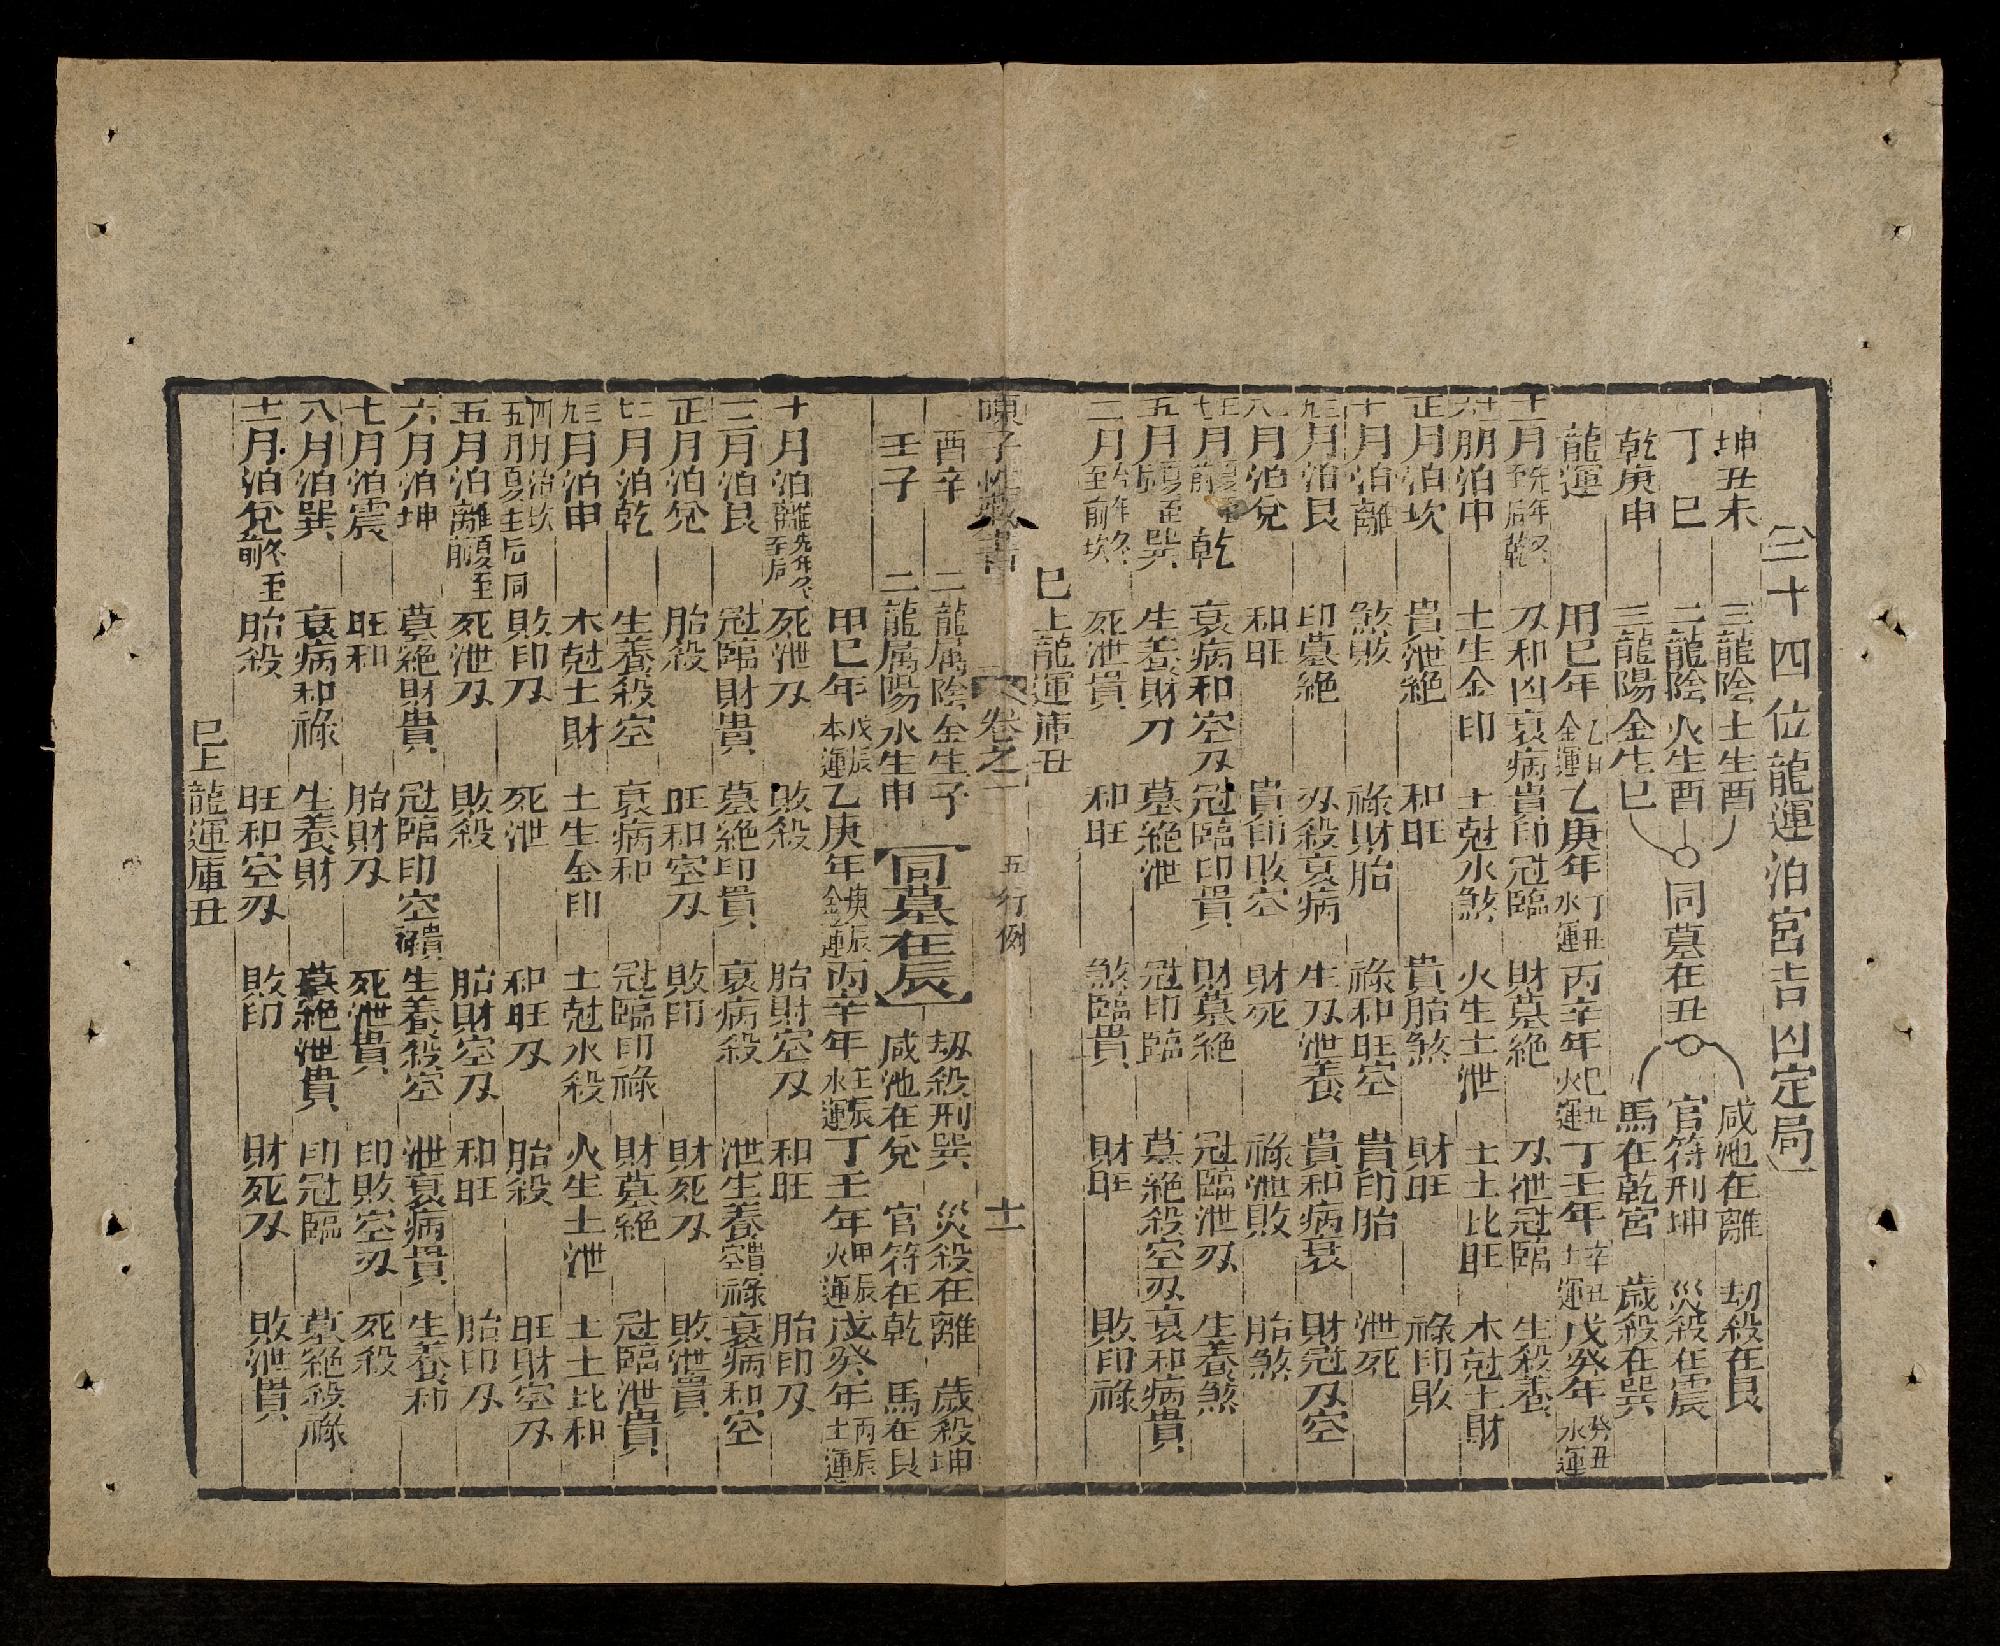 二十四位龍運泊宮吉凶定局
坤丑未 三龍陰土生酉 咸池在離 劫殺在艮
丁巳 二龍陰火生酉 同墓在丑 官符刑坤 災殺在震
乾庚申 三龍陽金生巳 馬在乾宮 歲殺在巽
龍運 甲巳年 乙丑金運 乙庚年 丁丑水運 丙辛年 巳丑火運 丁壬年 辛丑土運 戊癸年 癸丑水運
十二月 先年冬至后乾 刃和凶衰病 貴印冠臨 財墓絕 刃泄冠臨 生殺養
月泊中 土生金印 土尅水煞 火生土泄 土土比旺 木尅土財
正月泊坎 貴泄絕 和旺 貴胎煞 財旺 祿印敗
十月泊離 煞敗 祿財胎 祿和旺空 貴印胎 泄死
三九月泊艮 印墓絕 刃殺衰病 生刃泄養 貴和病衰 財冠刃空
八月泊兌 和旺 貴印敗空 財死 祿泄敗 胎煞
月 乾 衰病和空刃 冠臨印貴 財墓絕 冠臨泄刃 生養煞
五月 夏至 巽 生養財刀 墓絕泄 冠印臨 墓絕殺空刃 衰和病貴
二月 至前坎 死泄貴 和旺 煞臨貴 財旺 敗印祿
巳上龍運庫丑
卷之一 五行例 十一
酉辛 二龍属陰金生子 劫殺刑巽 災殺在離 歲殺坤
壬子 二龍属陽水生申 同墓在辰 咸池在兌 官符在乾 馬在艮
甲巳年 戊辰本運 乙庚年 庚辰金運 丙辛年 壬辰水運 丁壬年 甲辰火運 戊癸年 丙辰土運
十月泊離 先年冬至后 死泄刃 敗殺 胎財空刃 和旺 胎印刃
二月泊艮 冠臨財貴 墓絕印貴 衰病殺 泄生養空貴祿 衰病和空
正月泊兌 胎殺 旺和空刃 敗印 財死刃 敗泄貴
月泊乾 生養殺空 衰病和 冠臨印祿 財墓絕 冠臨泄貴
三九月泊中 木尅土財 土生金印 土尅水殺 火生土泄 土土比和
四月泊坎 五月夏至后同 敗印刃 死泄 和旺刃 胎殺 旺財空刃
五月泊離 夏至前 死泄刃 敗殺 胎財空刃 和旺 胎印刃
六月泊坤 墓絕財貴 冠臨印空貴祿 生養殺空 泄衰病貴 生養和
七月泊震 旺和 胎財刃 死泄貴 印敗空刃 死殺
八月泊巽 衰病和祿 生養財 墓絕泄貴 印冠臨 墓絕殺祿
十二月泊兌 冬至前 胎殺 旺和空刃 敗印 財死刃 敗泄貴
巳上龍運庫丑